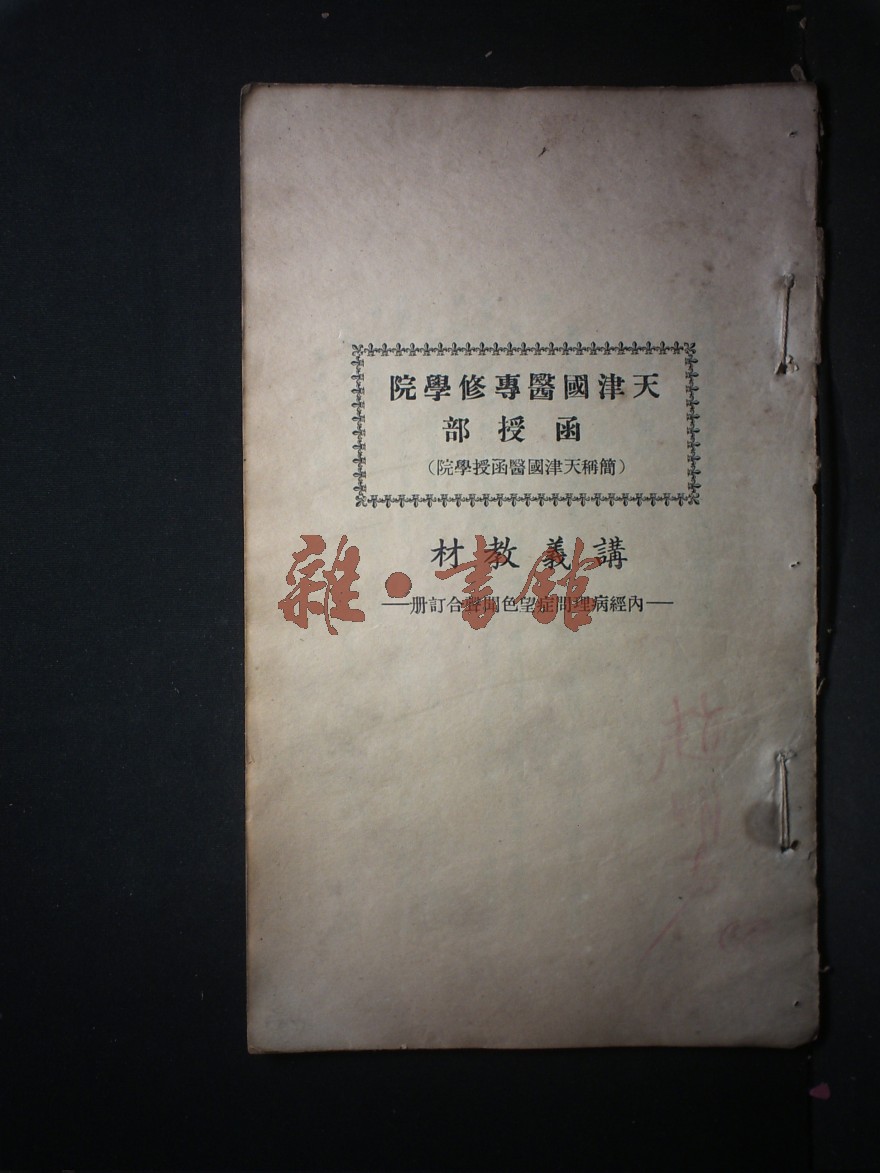 天津國醫專修學院
函授部
（簡稱天津國醫函授學院）
講義教材
—內經病理問症望色聞聲合訂册—
雜·書館